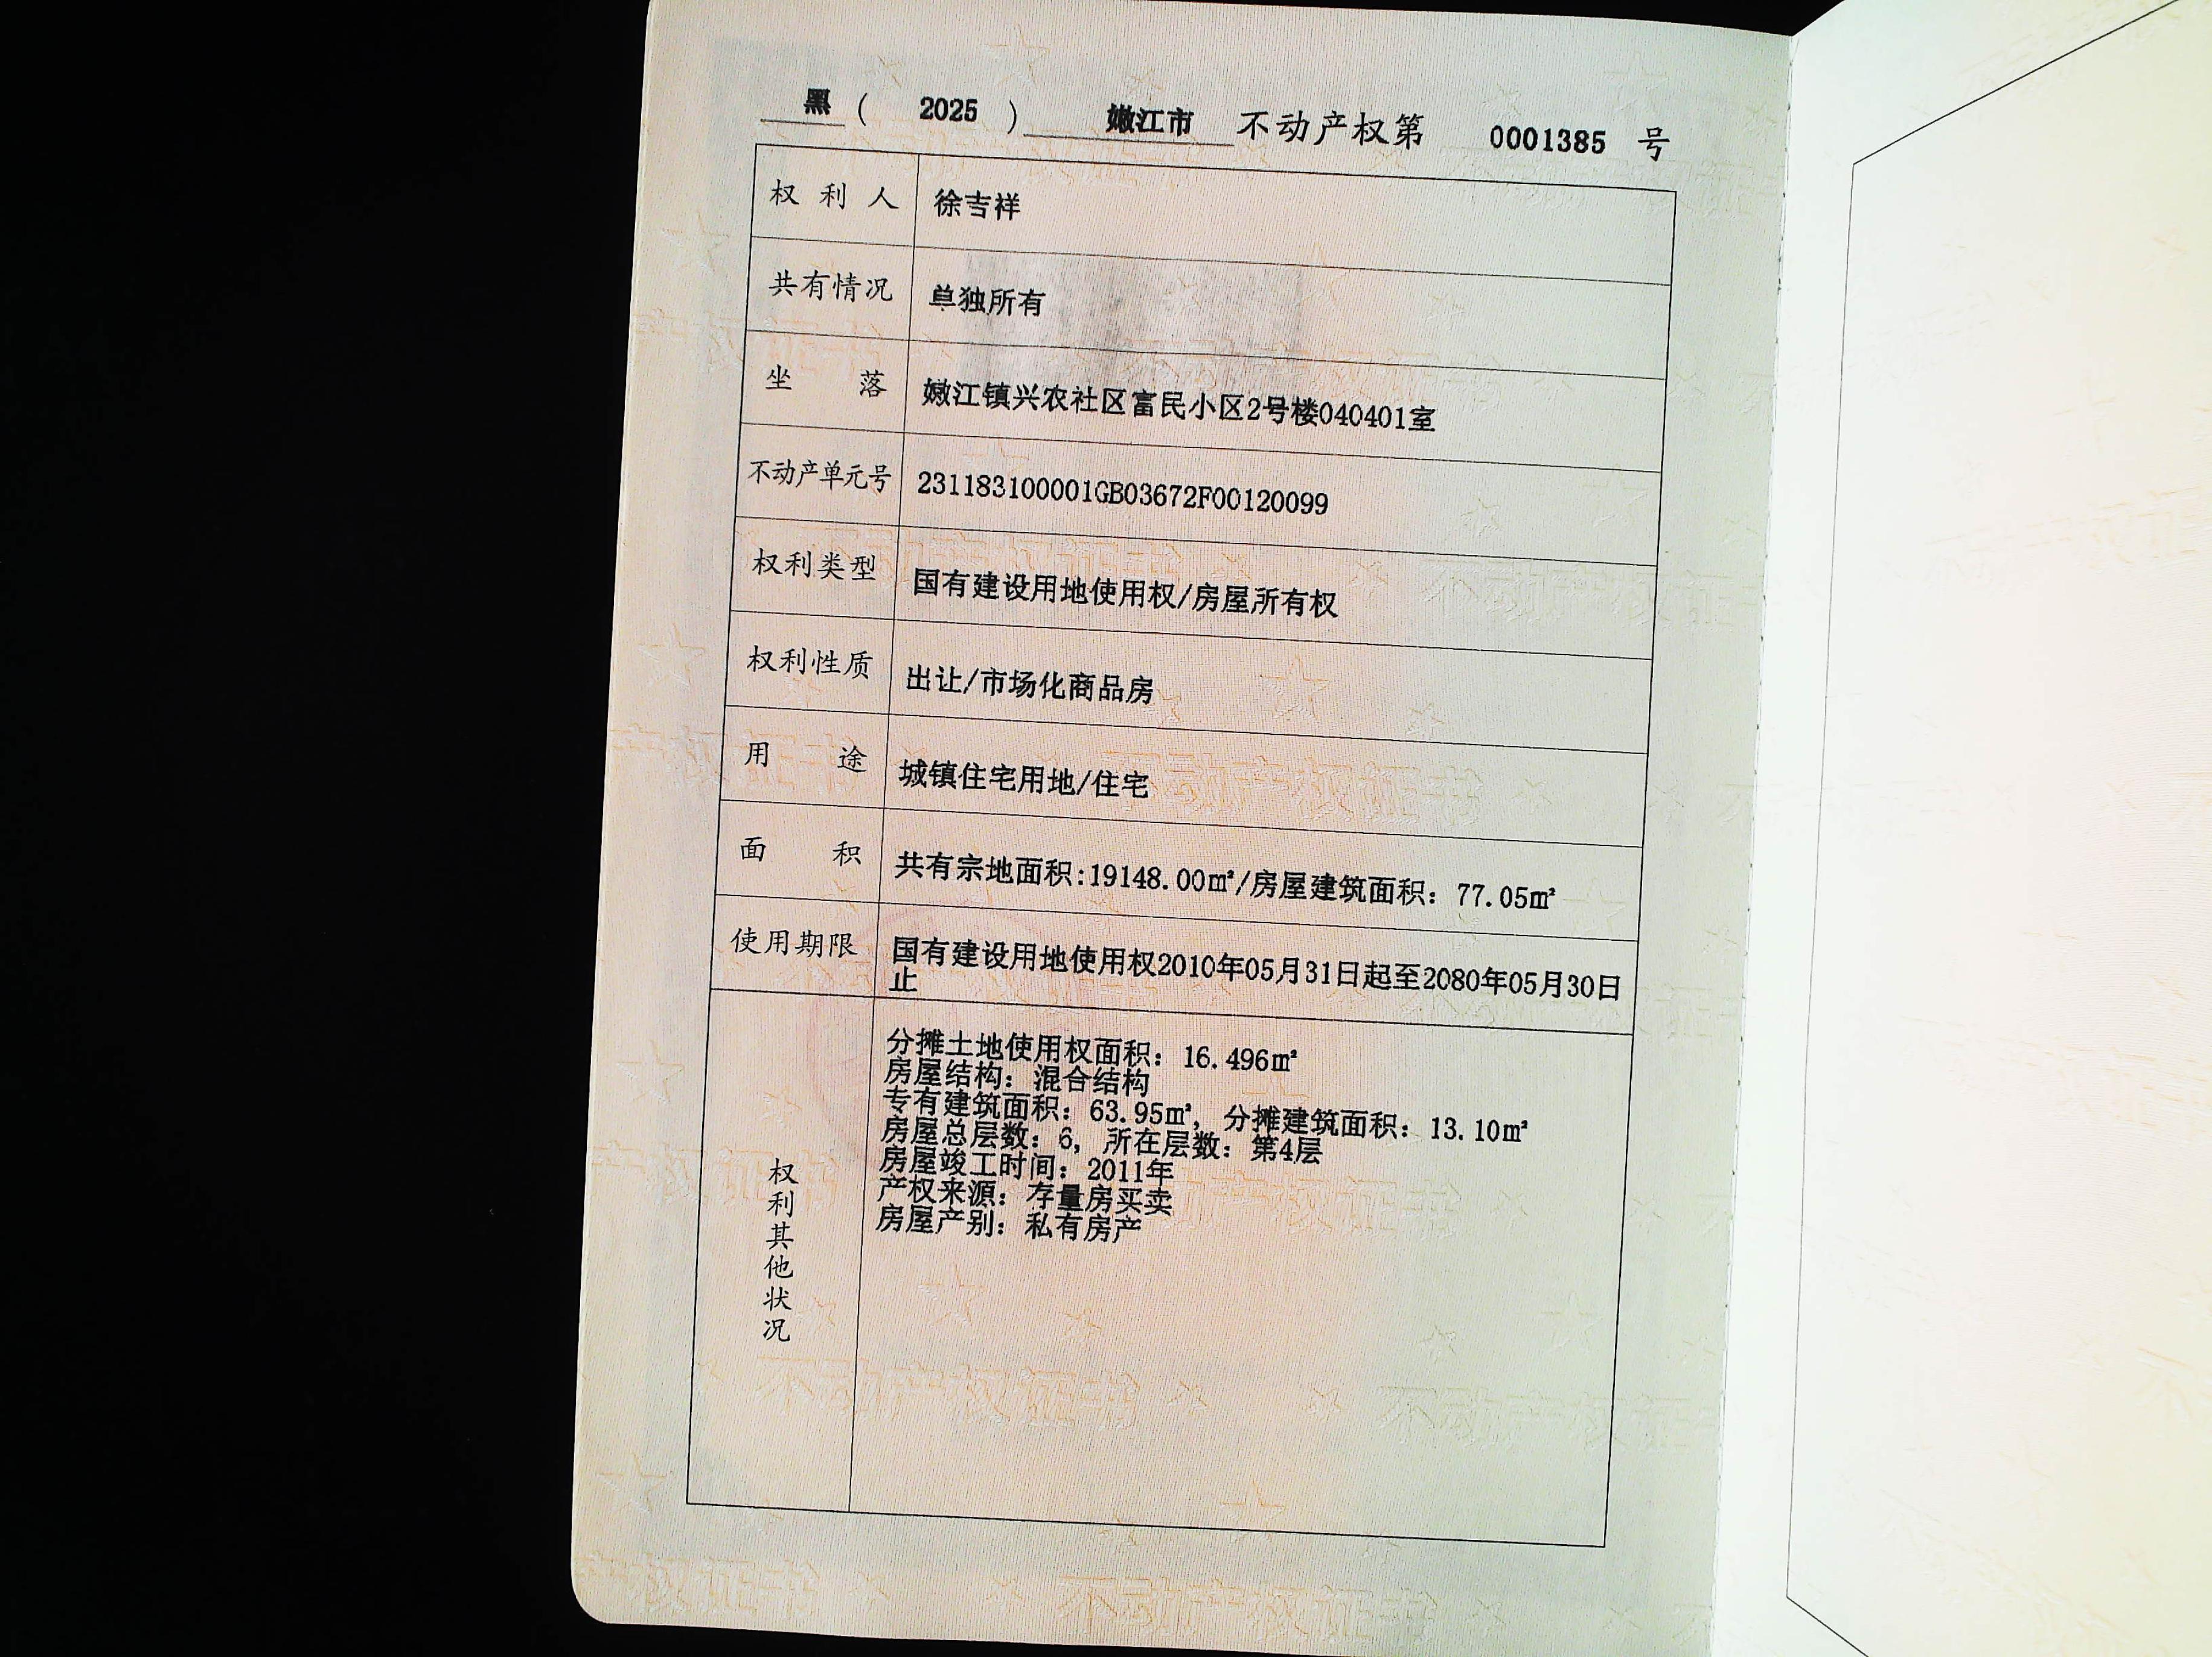 黑 ( 2025 ) 嫩江市 不动产权第 0001385 号
权利人 徐吉祥
共有情况 单独所有
坐落 嫩江镇兴农社区富民小区2号楼040401室
不动产单元号 231183100001GB03672F00120099
权利类型 国有建设用地使用权/房屋所有权
权利性质 出让/市场化商品房
用途 城镇住宅用地/住宅
面积 共有宗地面积:19148.00㎡/房屋建筑面积：77.05㎡
使用期限 国有建设用地使用权2010年05月31日起至2080年05月30日
止
权利其他状况
分摊土地使用权面积：16.496㎡
房屋结构：混合结构
专有建筑面积：63.95㎡，分摊建筑面积：13.10㎡
房屋总层数：6，所在层数：第4层
房屋竣工时间：2011年
产权来源：存量房买卖
房屋产别：私有房产